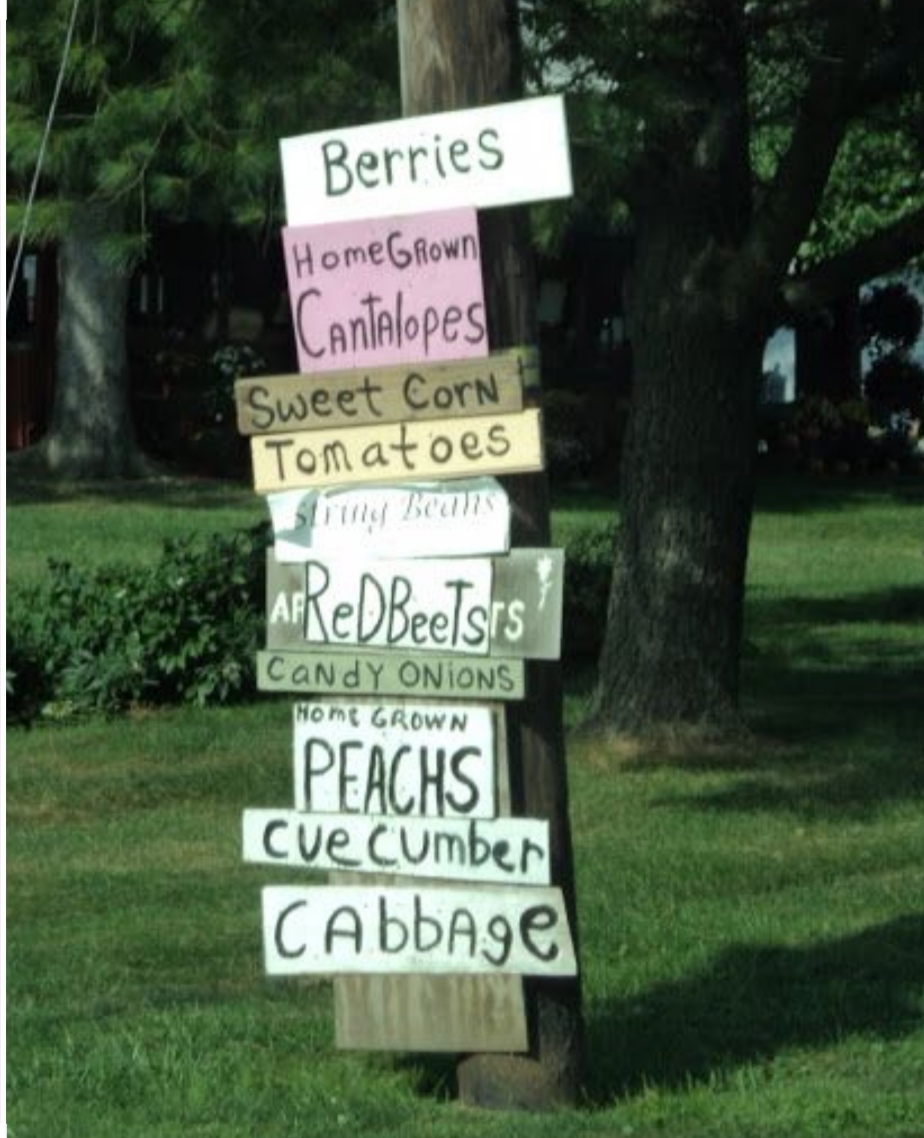 Berries
HomeGrown
Cantalopes
Sweet Corn
Tomatoes
String Beans
ReDBeeTs
CANDY ONIONS
HOME GROWN
PEACHS
Cuecumber
CAbbAge